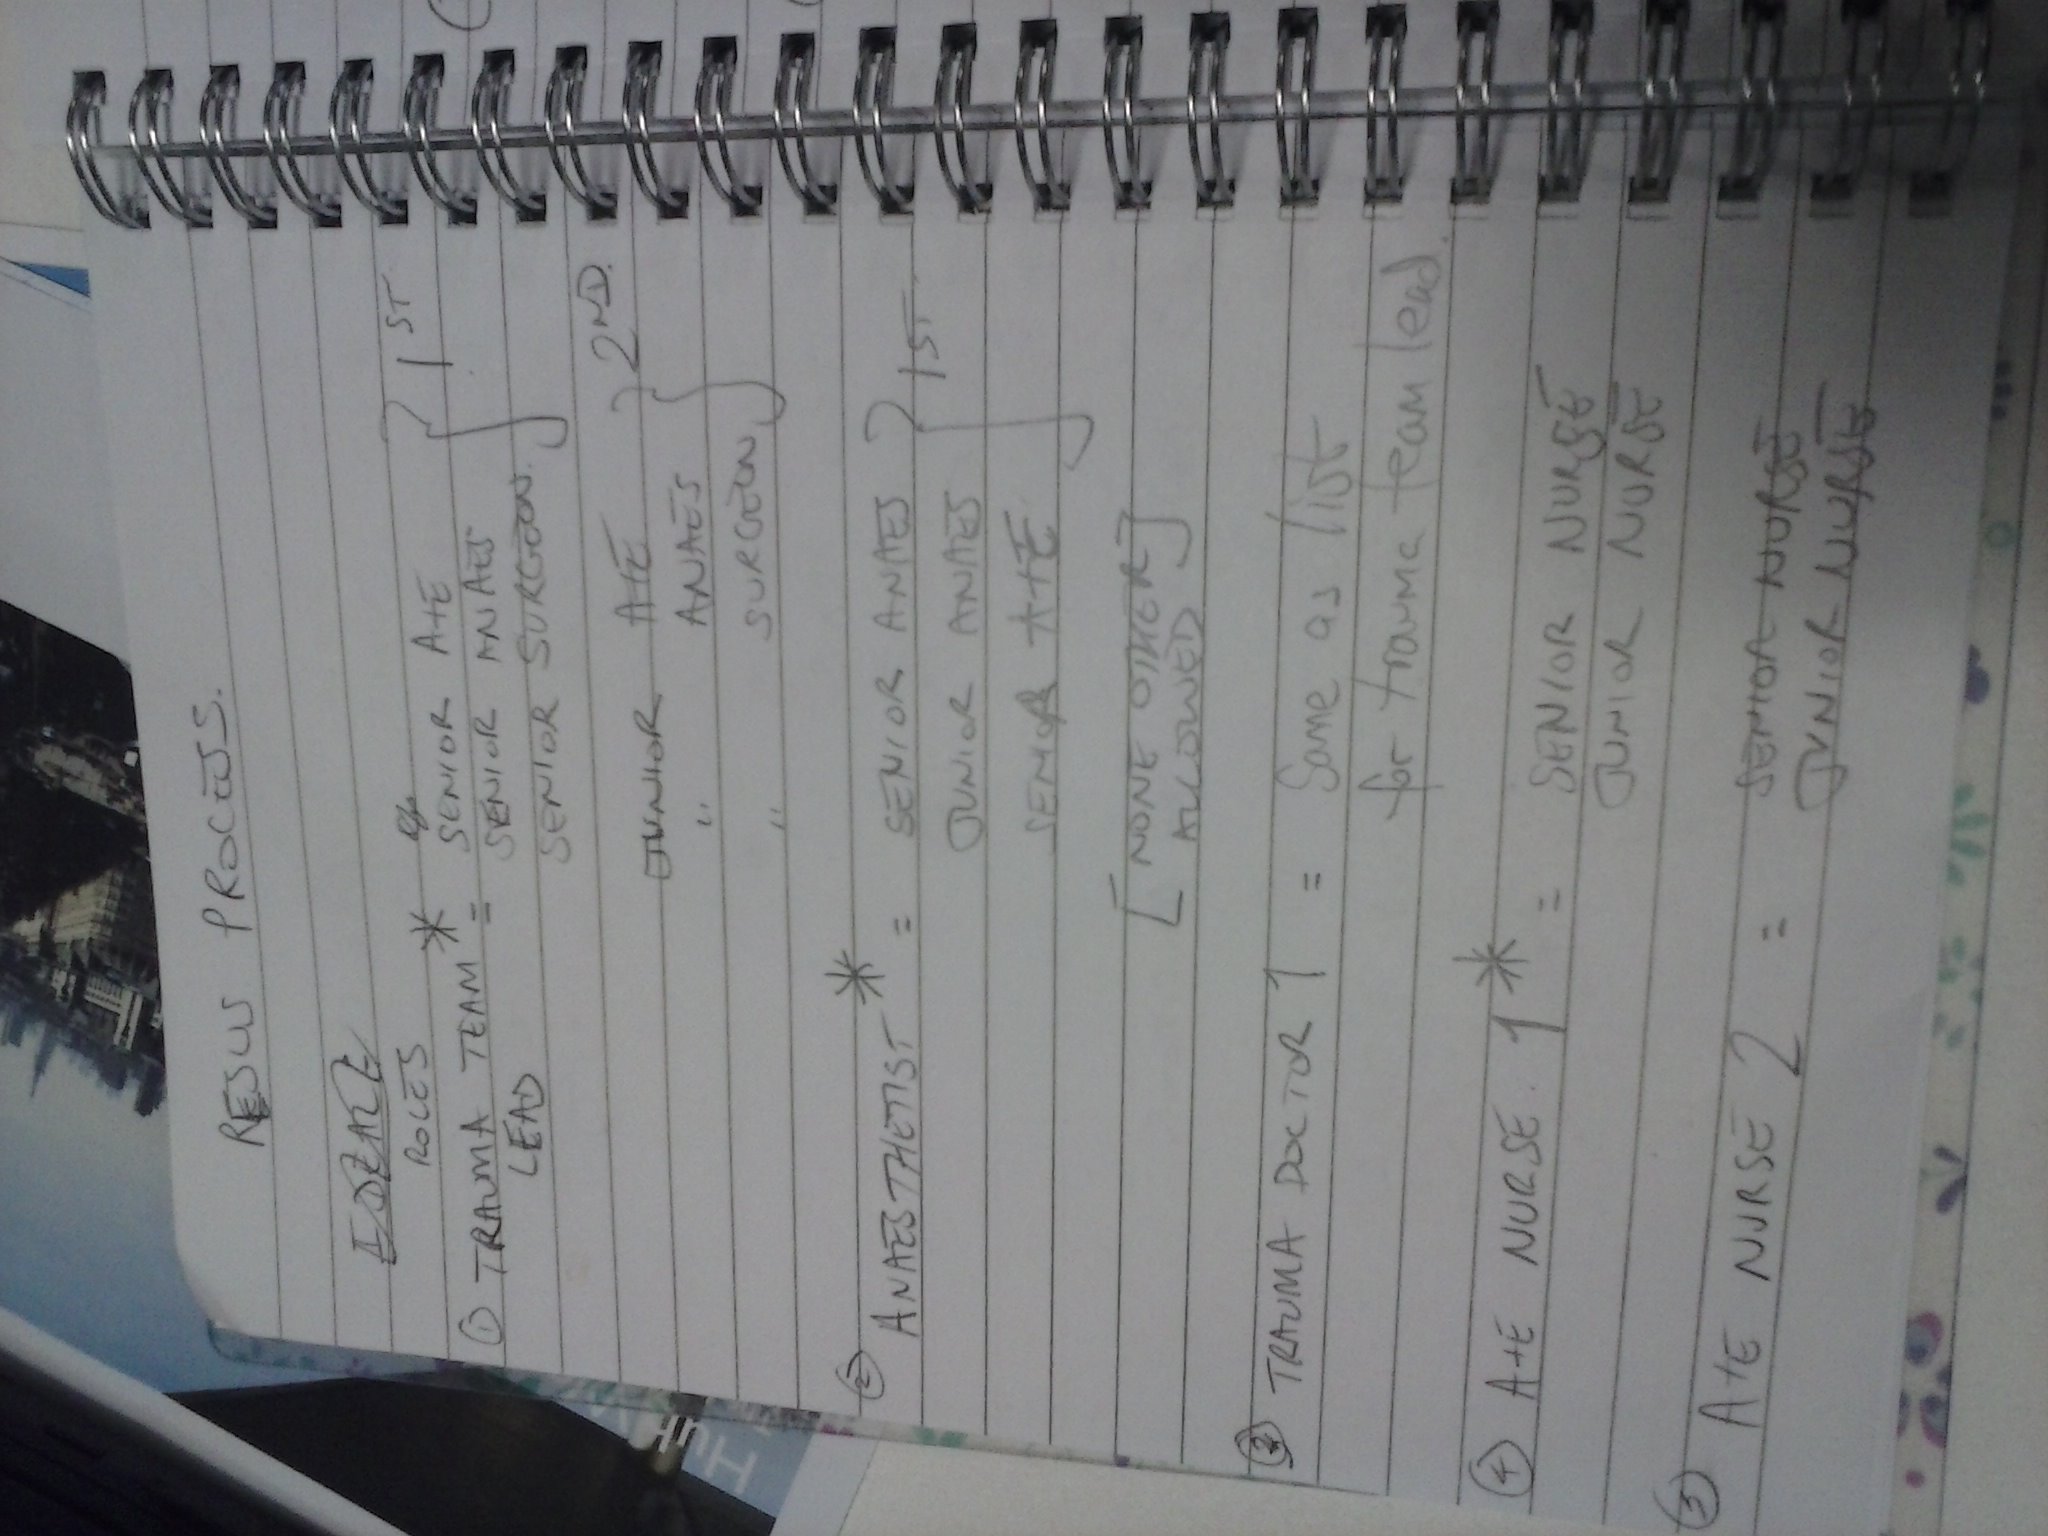 RESUS PROCESS.
ROLES
① TRAUMA TEAM * = SENIOR A+E } 1ST
LEAD SENIOR ANAES
SENIOR SURGEON.
JUNIOR A+E } 2ND.
" ANAES
" SURGEON
② ANAESTHETIST * = SENIOR ANAES } 1ST
JUNIOR ANAES
SENIOR A+E
[NONE OTHER]
ALLOWED
③ TRAUMA DOCTOR 1 = Same as list
for trauma team lead.
④ A+E NURSE. 1 * = SENIOR NURSE
JUNIOR NURSE
⑤ A+E NURSE 2 = SENIOR NURSE
JUNIOR NURSE